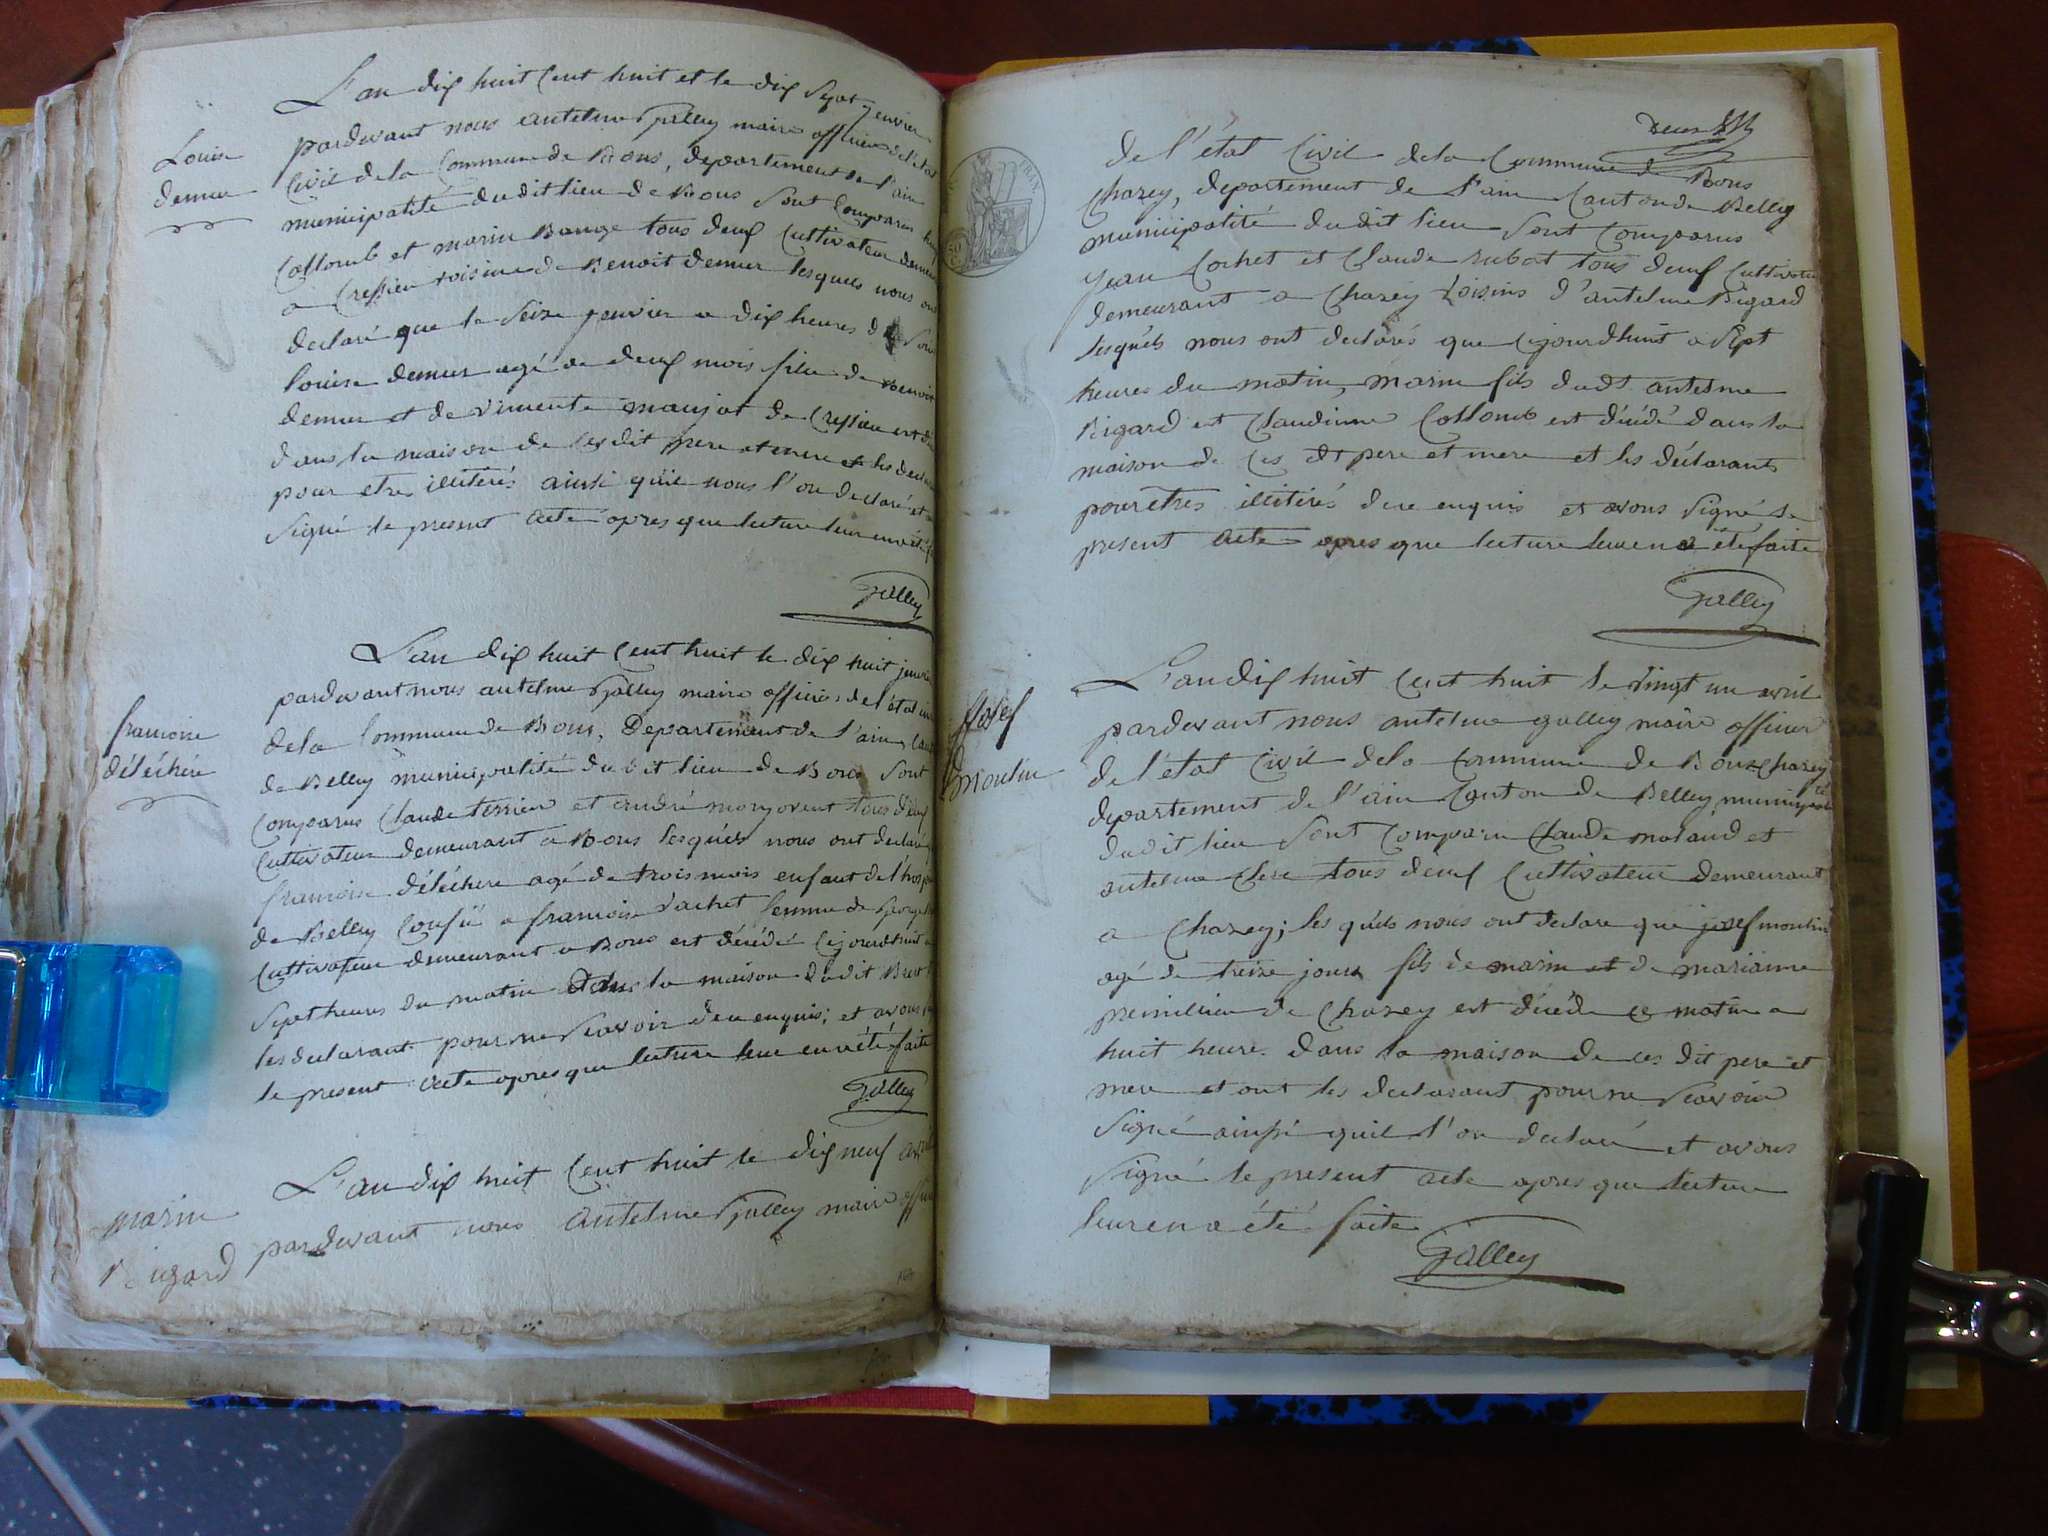 L'an dix huit Cent huit et le dix Sept jenvier
pardevant nous antelme Galley maire officier de l'etat
Louise
demeur
Civil de la Commune de Bons, departement de l'ain
municipalité dudit lieu de Bons Sont Comparus
Collomb et marin Bauge tous deux Cultivateur demeur
a Cressieu voisins de Benoit demeur lesquels nous ont
declaré que le Seize jenvier a dix heures du Soir
louise demeur agé de deux mois fille de Benoit
demeur et de vincente maujot de Cressieu est
dans la maison de Ces dit pere et mere et les
pour etres illiterés ainsi quil nous l'on declaré et
Signé le present Acte apres que lecture leur en
Galley
L'an dix huit Cent huit le dix huit jenvier
pardevant nous antelme Galley maire officier de l'état
francoise
déléchere
de la Commune de Bons, Departement de l'ain,
de Belley municipalité du dit lieu de Bons Sont
Comparus Claude terrier et andré tous deux
Cultivateur demeurant a Bons lesquels nous ont declaré
francoise déléchere agé de trois mois enfant de l'
de Belley Confié a francoise vachet femme de
Cultivateur demeurant a Bons est décédé Cejourdhuit a
Sept heures du matin dans la maison dudit
les declarant pour ne Scavoir deu enquis; et avons
le present acte apres que lecture leur en a été faite
Galley
L'an dix huit Cent huit le dix neuf avril
marin
Rigard
pardevant nous Antelme Galley maire
deux
de l'état Civil de la Commune de Bons
Chazey, departement de l'ain Canton de Belley
municipalité dudit lieu Sont Comparus
Jean Cochet et Claude rubat tous deux Cultivateur
demeurant a Chazey voisins d'antelme Rigard
lesquels nous ont declarés que Cejourdhuit a Sept
heures du matin, marin fils dudt antelme
Rigard et Claudinne Collomb est décédé dans la
maison de Ces dt pere et mere et les déclarants
pour êtres illitirés deu enquis et avons Signé le
present Acte apres que lecture leur en a été faite
Galley
L'an dix huit Cent huit le vingt un avril
Josef
moulin
pardevant nous antelme galley maire officier
de l'état Civil de la Commune de Bons Chazey
departement de l'ain Canton de Belley municipalité
dudit lieu Sont Comparu Claude et
antelme Clerc tous deux Cultivateur demeurant
a Chazey; les quels nous ont declare que josef moulin
agé de treize jours fils de marin et de marianne
de Chazey est décédé ce matin a
huit heure dans la maison de ces dit pere et
mere et ont les declarant pour ne Scavoir
Signé ainsi quil l'on declaré et avons
Signé le present acte apres que lecture
leur en a été faite
Galley